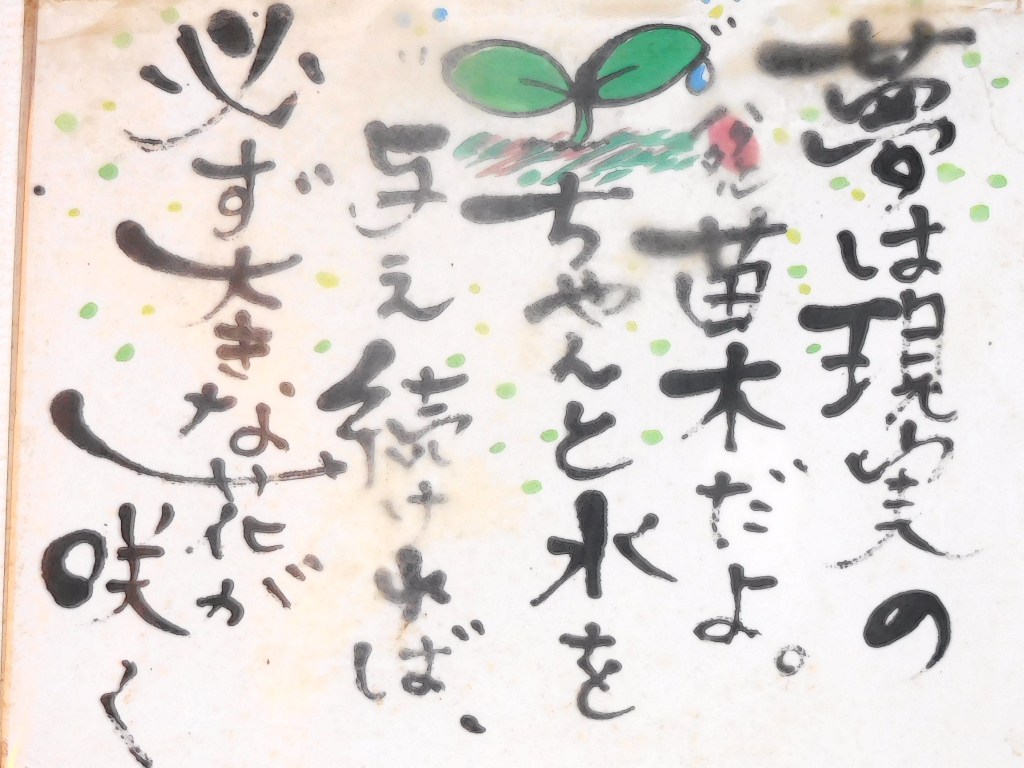 夢は現実の
苗木だよ。
ちゃんと水を
与え続ければ、
必ず大きな花が
咲く